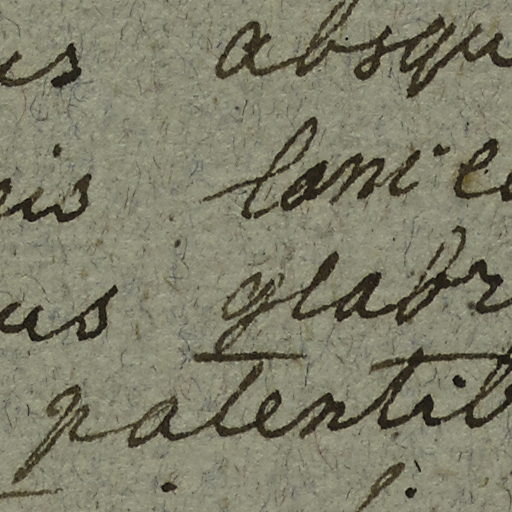 us absqu
is lance
us glabr
patentib